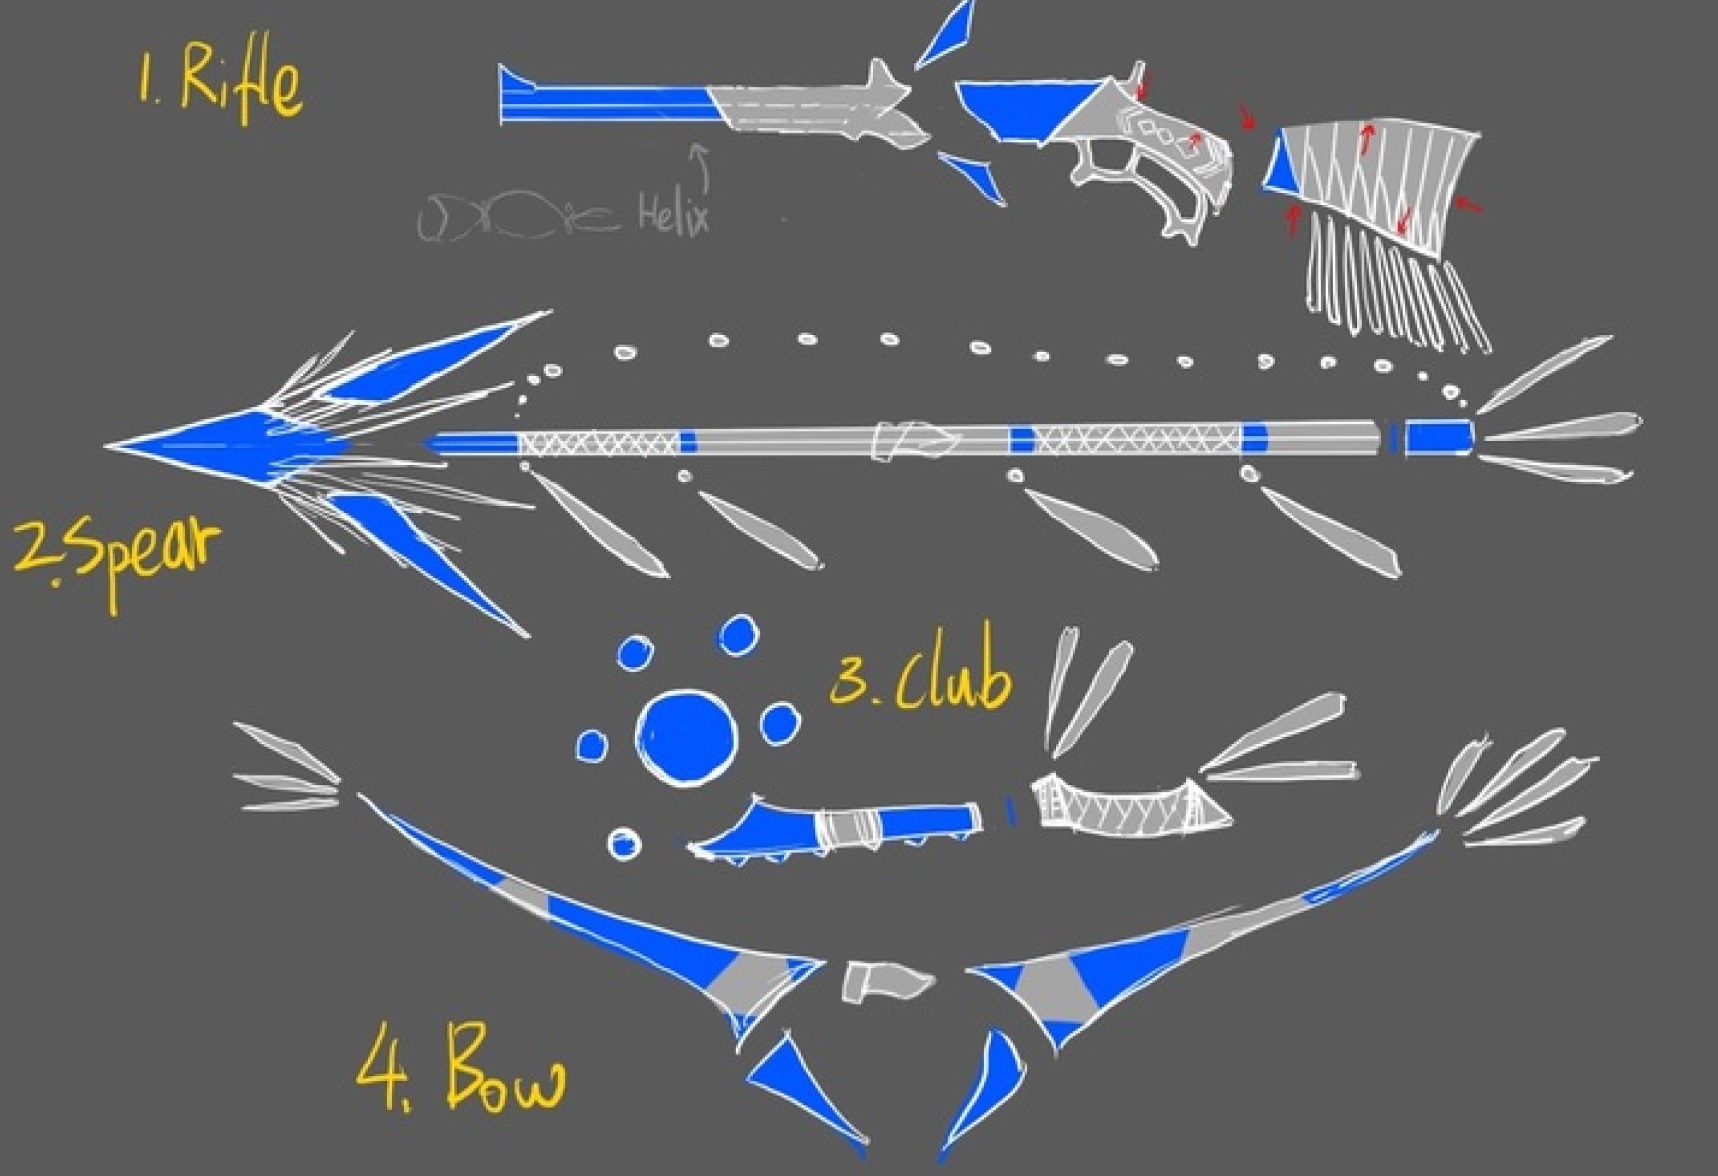 1. Rifle
Helix
2. Spear
3. Club
4. Bow